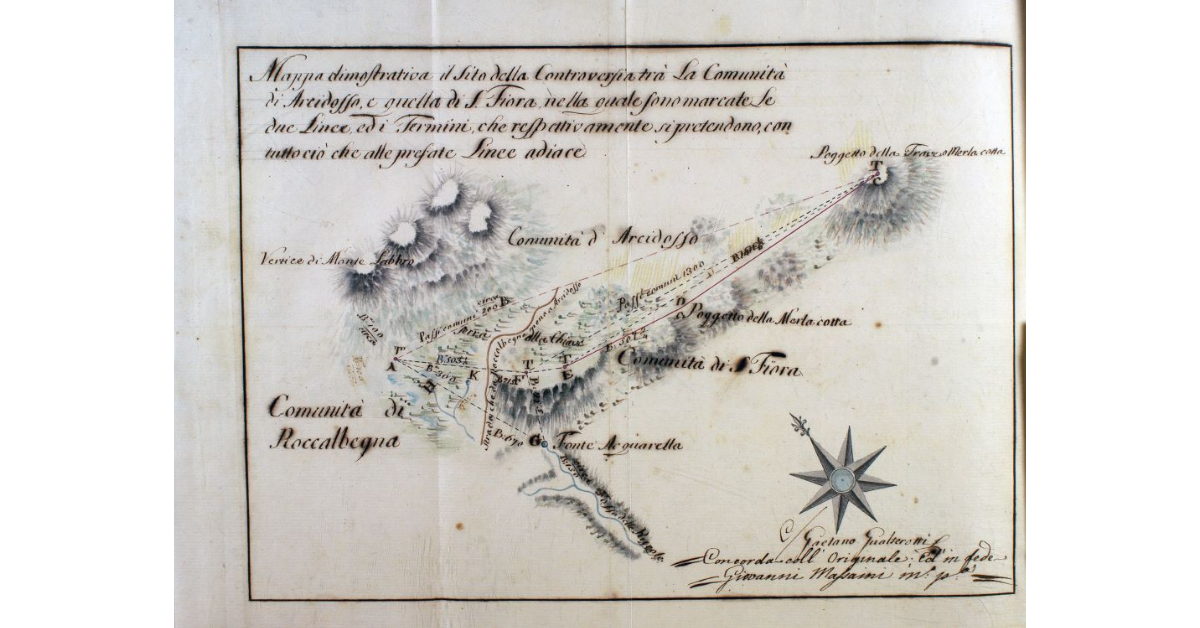 Mappa dimostrativa il Sito della Controversia trà La Comunità
di Arcidosso, e quella di S. Fiora, nella quale sono marcate Le
due Linee, ed i Termini, che respettivamente si pretendono, con
tutto ciò che alle presate Linee adiace
Poggetto della Trave o Merla cotta
T
C
Comunità d' Arcidosso
Vertice di Monte Labbro
Passi comuni 1300
B
Passi comuni 200
circa
D
Poggetto della Merla cotta
Strada che da Roccalbegna
Arcidosso
della Chiave
T
A
K
T
F
T
E
H
Comunità di S. Fiora
Comunità di
Roccalbegna
B. 670
G
Fonte Acquarella
Gaetano Gualterotti
Concorda coll' Originale. Ed in fede
Giovanni Masaini m.º p.º